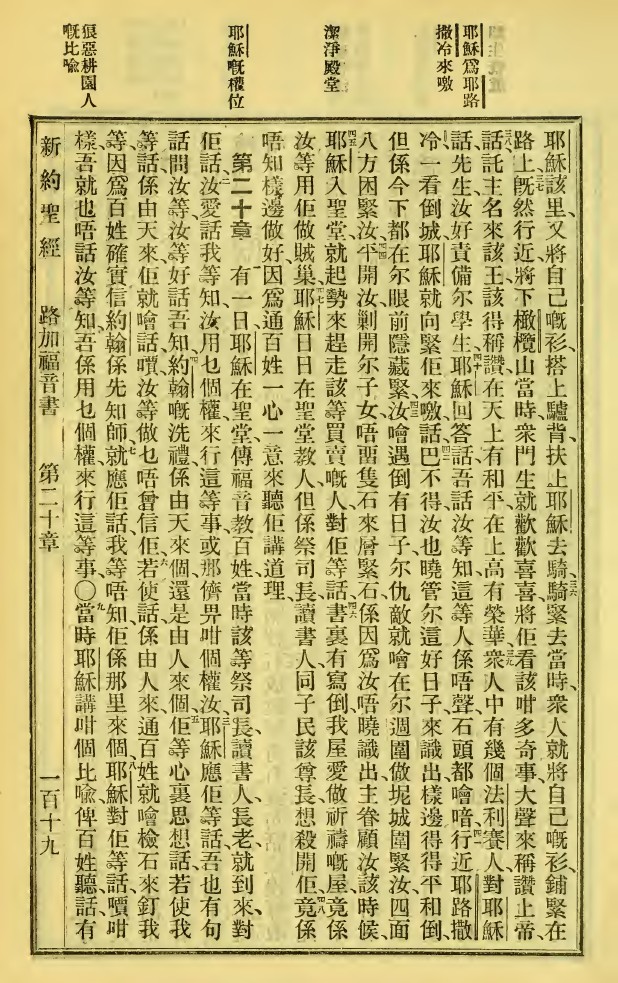 耶穌為耶路
撒冷來噭
潔淨殿堂
耶穌嘅權位
狠惡耕園人
嘅比喻
耶穌該里、又將自己嘅衫、搭上驢背、扶上耶穌去騎、三六騎緊去當時、衆人就將自己嘅衫、鋪緊在
路上、三七既然行近、將下橄欖山、當時衆門生、就歡歡喜喜、將佢看該咁多奇事、大聲來稱讚上帝、
三八話、託主名來該王、該得稱讚、在天上有和平、在上高有榮華、三九衆人中有幾個法利賽人、對耶穌
話、先生、汝好責備尔學生、四十耶穌回答話、吾話汝等知、這等人係唔聲、石頭都噲喑、四一行近耶路撒
冷、一看倒城、耶穌就向緊佢來噭、四二話、巴不得汝也曉管尔這好日子、來識出樣邊得得平和倒、
但係今下都在尔眼前隱藏緊、四三汝噲遇倒有日子、尔仇敵就噲在尔週圍做坭城圍緊汝、四面
八方困緊汝、四四平開汝、剿開尔子女、唔畱隻石來層緊石、係因爲汝唔曉識出主眷顧汝該時候、
四五耶穌入聖堂、就起勢來趕走該等買賣嘅人、四六對佢等話、書裏有寫倒、我屋愛做祈禱嘅屋、竟係
汝等用佢做賊巢、四七耶穌日日在聖堂教人、但係祭司長、讀書人、同子民該尊長、想殺開佢、四八竟係
唔知樣邊做好、因爲通百姓、一心一意來聽佢講道理、
第二十章　一有一日耶穌在聖堂、傳福音教百姓、當時該等祭司長、讀書人、長老、就到來、對
佢話、二汝愛話我等知、汝用乜個權來行這等事、或那儕畀咁個權汝、三耶穌應佢等話、吾也有句
話問汝等、汝等好話吾知、四約翰嘅洗禮、係由天來個、還是由人來個、五佢等心裏思想話、若使我
等話係由天來、佢就噲話嘪、汝等做乜唔曾信佢、六若使話係由人來、通百姓就噲檢石來釘我
等、因爲百姓確實信約翰係先知師、七就應佢話、我等唔知佢係那里來個、八耶穌對佢等話、嘪咁
樣、吾就也唔話汝等知、吾係用乜個權來行這等事、〇九當時耶穌講咁個比喻、俾百姓聽話、有
新約聖經　路加福音書　第二十章　一百十九